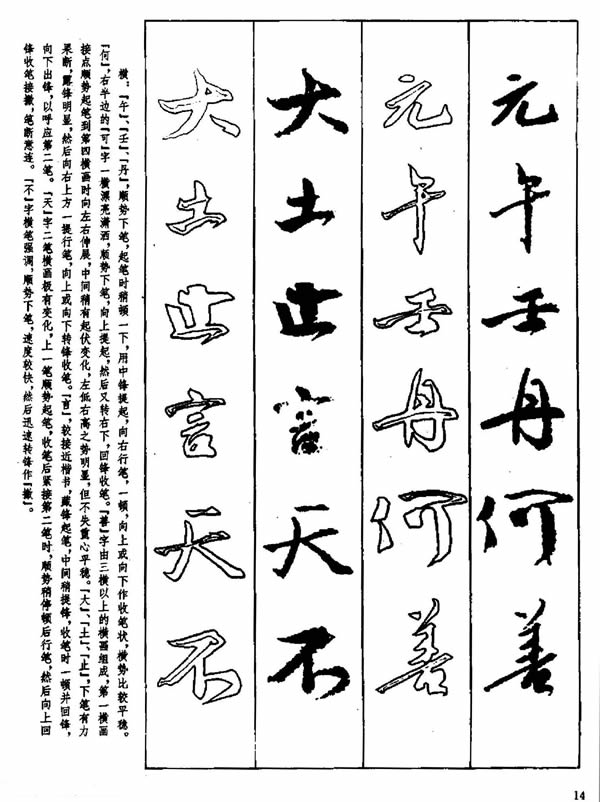 元午壬丹何善
元午壬丹何善
大土止言天不
大土止言天不
横:『午』、『壬』、『丹』,顺势下笔,起笔时稍顿一下,用中锋提起,向右行笔,一顿,向上或向下作收笔状,横势比较平稳。
『何』,右半边的『可』字一横漂亮潇洒,顺势下笔,向上提起,然后又转右下,回锋收笔。『善』字由三横以上的横画组成,第一横画
接点顺势起笔到第四横画时向左右伸展,中间稍有起伏变化,左低右高之势明显,但不失重心平稳。『大』、『土』、『止』,下笔有力
果断,露锋明显,然后向右上方一提行笔,向上或向下转锋收笔。『言』,较接近楷书,藏锋起笔,中间稍提锋,收笔时一顿并回锋,
向下出锋,以呼应第二笔。『天』字二笔横画极有变化,上一笔顺势起笔,收笔后紧接第二笔时,顺势稍停顿后行笔,然后向上回
锋收笔接撇,笔断意连。『不』字横笔强调,顺势下笔,速度较快,然后迅速转锋作『撇』。
14